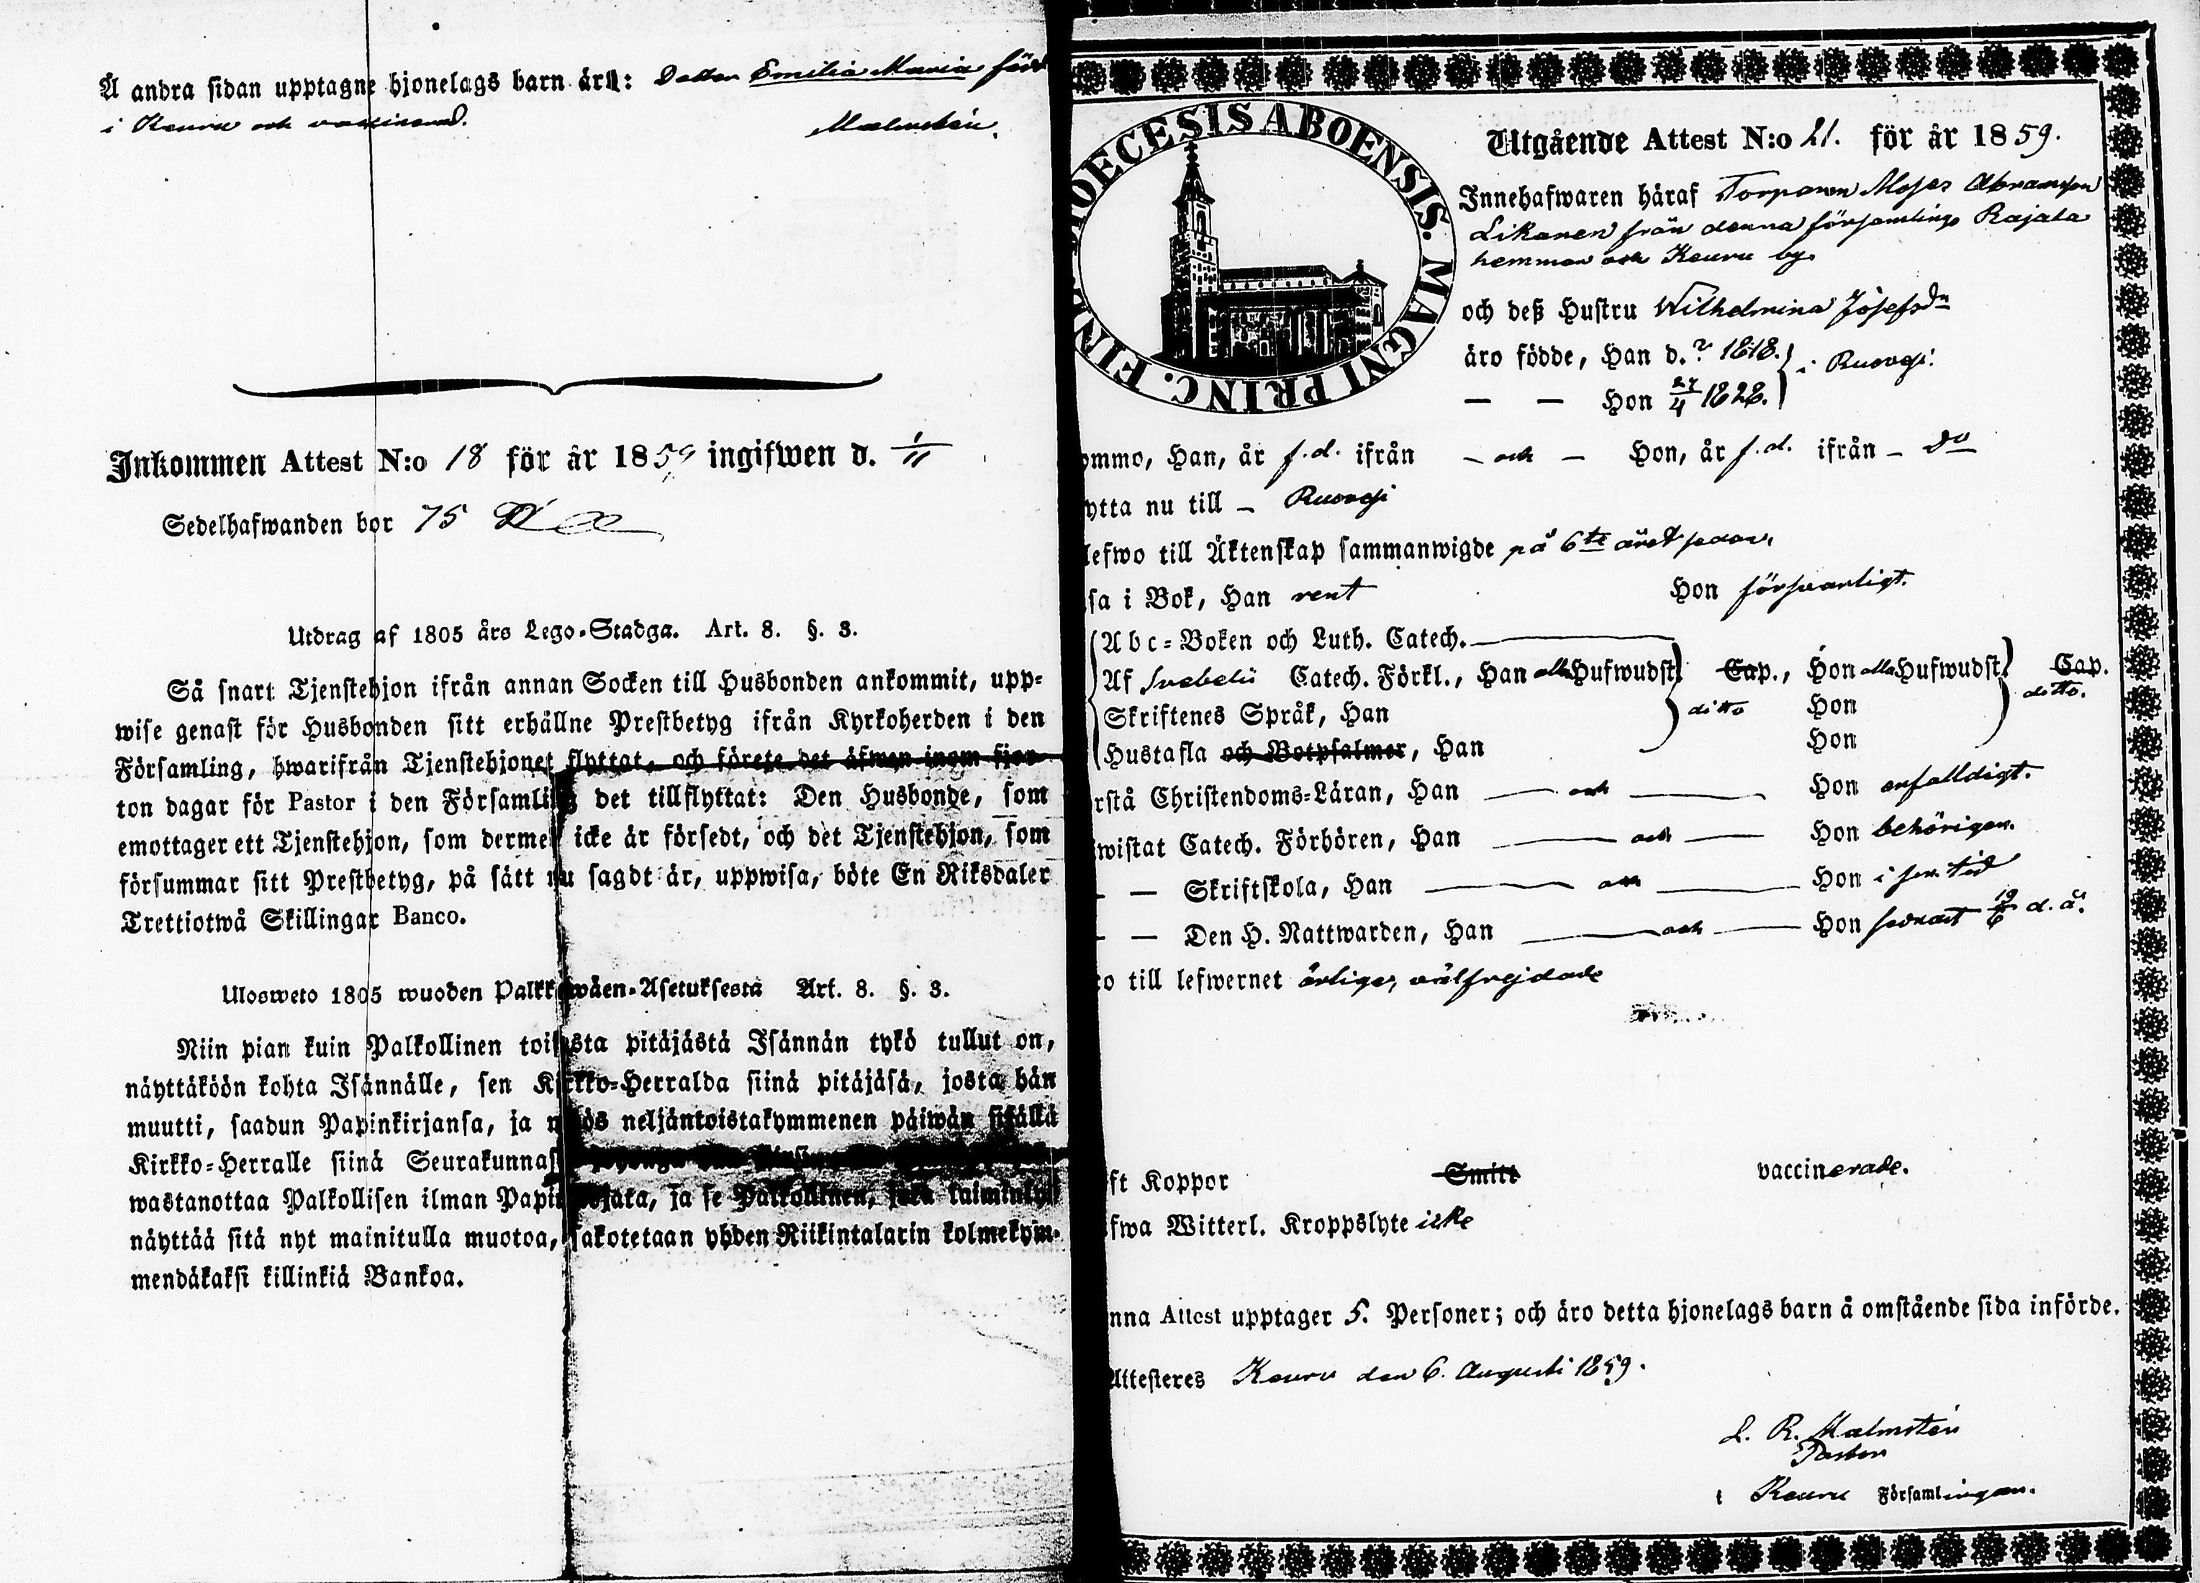 Å andra sidan upptagne hjonelags barn är: Dotter Emilia Maria född
i Keuru och vaccinerad.
Malmstén.
Inkommen Attest N:o 18 för år 1859 ingifwen d. 1/11
Sedelhafwanden bor 75
Utdrag af 1805 års Lego-Stadga. Art. 8. §. 3.
Så snart Tjenstehjon ifrån annan Socken till Husbonden ankommit, upp-
wise genast för Husbonden sitt erhållne Prestbetyg ifrån Kyrkoherden i den
Församling, hwarifrån Tjenstehjonet flyttat, och förete det äfwen inom fjor-
ton dagar för Pastor i den Församling det tillflyttat: Den Husbonde, som
emottager ett Tjenstehjon, som dermed icke är försedt, och det Tjenstehjon, som
försummar sitt Prestbetyg, på sätt nu sagdt är, uppwisa, böte En Riksdaler
Trettiotwå Skillingar Banco.
Ulosweto 1805 wuoden Palkkawäen-Asetuksesta Art. 8. §. 3.
Niin pian kuin Palkollinen toisesta pitäjästä Isännän tykö tullut on,
näyttäköön kohta Isännälle, sen Kirkko-Herralda siinä pitäjäsä, josta hän
muutti, saadun Papinkirjansa, ja myös neljäntoistakymmenen päiwän sisällä
Kirkko-Herralle siinä
wastanottaa Palkollisen ilman Papinkirjata, ja se Palkollinen, joka laiminlyö
näyttää sitä nyt mainitulla muotoa, sakotetaan yhden Riikintalarin kolmekym-
mendäkaksi killinkiä Bankoa.
DIOECESIS ABOENSIS. MAGNI PRINC. FINL.
Utgående Attest N:o 21. för år 1859.
Innehafwaren häraf Torparen Moses Abramsson
Likanen från denna församlings Rajala
hemman och Keuru by.
och deß Hustru Wilhelmina Josefsdr
äro födde, Han d. ? 1818. } i Ruovesi.
— — Hon 27/4 1828.
ommo, Han, år f.d. ifrån – och – Hon, år f.d. ifrån – Do
ytta nu till – Ruovesi
lefwo till Äktenskap sammanwigde på 6te året sedan.
sa i Bok, Han rent Hon försvarligt.
Abc-Boken och Luth. Catech.
Af Svebelii Catech. Förkl., Han alla Hufwudst. Cap., Hon alla Hufwudst. Cap.
Skriftenes Språk, Han ditto Hon ditto.
Hustafla och Botpsalmer, Han Hon
rstå Christendoms-Läran, Han — och — Hon enfalldigt.
wistat Catech. Förhören, Han — och — Hon behörigen.
— — Skriftskola, Han — och — Hon i sin tid
— — Den H. Nattwarden, Han — och — Hon senast 19/6 d. å.
o till lefwernet ärlige, välfrejdade
ft Koppor Smitt vaccinerade.
fwa Witterl. Kroppslyte icke
nna Attest upptager 5. Personer; och äro detta hjonelags barn å omstående sida införde.
Attesteres Keuru den 6. Augusti 1859.
L. R. Malmstén
Pastor
i Keuru Församlingen.